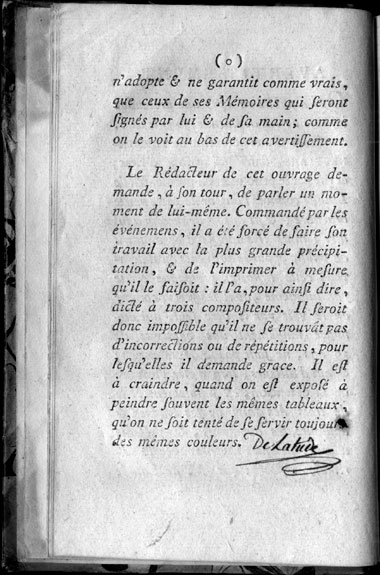 ( o )
n'adopte & ne garantit comme vrais,
que ceux de ses Mémoires qui ſeront
ſignés par lui & de ſa main; comme
on le voit au bas de cet avertiſſement.
Le Rédacteur de cet ouvrage de-
mande, à ſon tour, de parler un mo-
ment de lui-même. Commandé par les
événemens, il a été forcé de faire ſon
travail avec la plus grande précipi-
tation, & de l'imprimer à meſure
qu'il le faiſoit : il l'a, pour ainſi dire,
dicté à trois compoſiteurs. Il ſeroit
donc impoſſible qu'il ne ſe trouvât pas
d'incorrections ou de répétitions, pour
leſquelles il demande grace. Il eſt
à craindre, quand on eſt expoſé à
peindre ſouvent les mêmes tableaux,
qu'on ne ſoit tenté de ſe ſervir toujours
des mêmes couleurs. De Latude